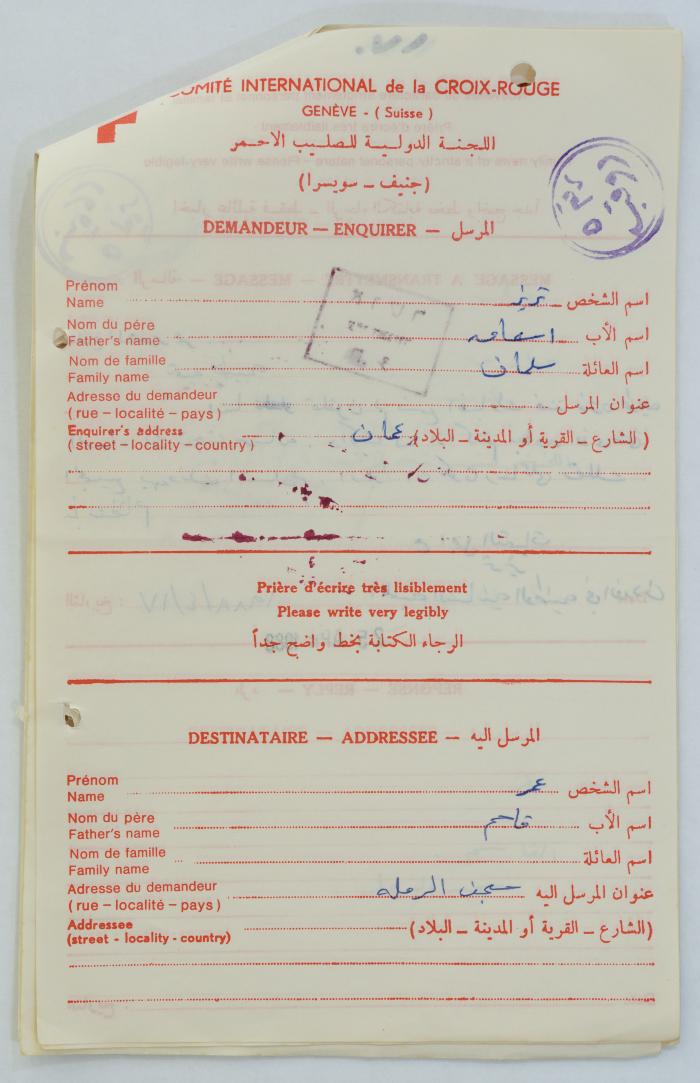 COMITÉ INTERNATIONAL de la CROIX-ROUGE
GENÈVE - ( Suisse )
اللجنة الدولية للصليب الأحمر
(جنيف – سويسرا)
DEMANDEUR — ENQUIRER — المرسل
Prénom
Name اسم الشخص تريز
Nom du père
Father's name اسم الأب
Nom de famille
Family name اسم العائلة سلمان
Adresse du demandeur
( rue – localité – pays ) عنوان المرسل
Enquirer's address
( street – locality – country ) ( الشارع – القرية أو المدينة – البلاد) عمان
Prière d'écrire très lisiblement
Please write very legibly
الرجاء الكتابة بخط واضح جداً
DESTINATAIRE — ADDRESSEE — المرسل اليه
Prénom
Name اسم الشخص عمر
Nom du père
Father's name اسم الأب قاسم
Nom de famille
Family name اسم العائلة
Adresse du demandeur
( rue – localité – pays ) عنوان المرسل اليه سجن الرمله
Addressee
(street - locality - country) (الشارع – القرية أو المدينة – البلاد)